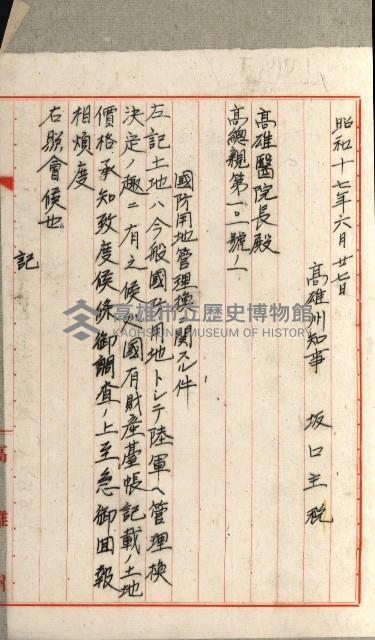 昭和十七年六月廿七日
高雄州知事 坂口主税
高雄醫院長殿
高總親第一〇一號ノ一
國防用地管理換ニ関スル件
左記土地ハ今般國防用地トシテ陸軍ヘ管理換
決定ノ趣ニ有之候 國有財産臺帳記載ノ土地
價格承知致度候條御調査ノ上至急御回報
相煩度
右照會候也
記
高雄市立歷史博物館
KAOHSIUNG MUSEUM OF HISTORY
高雄州